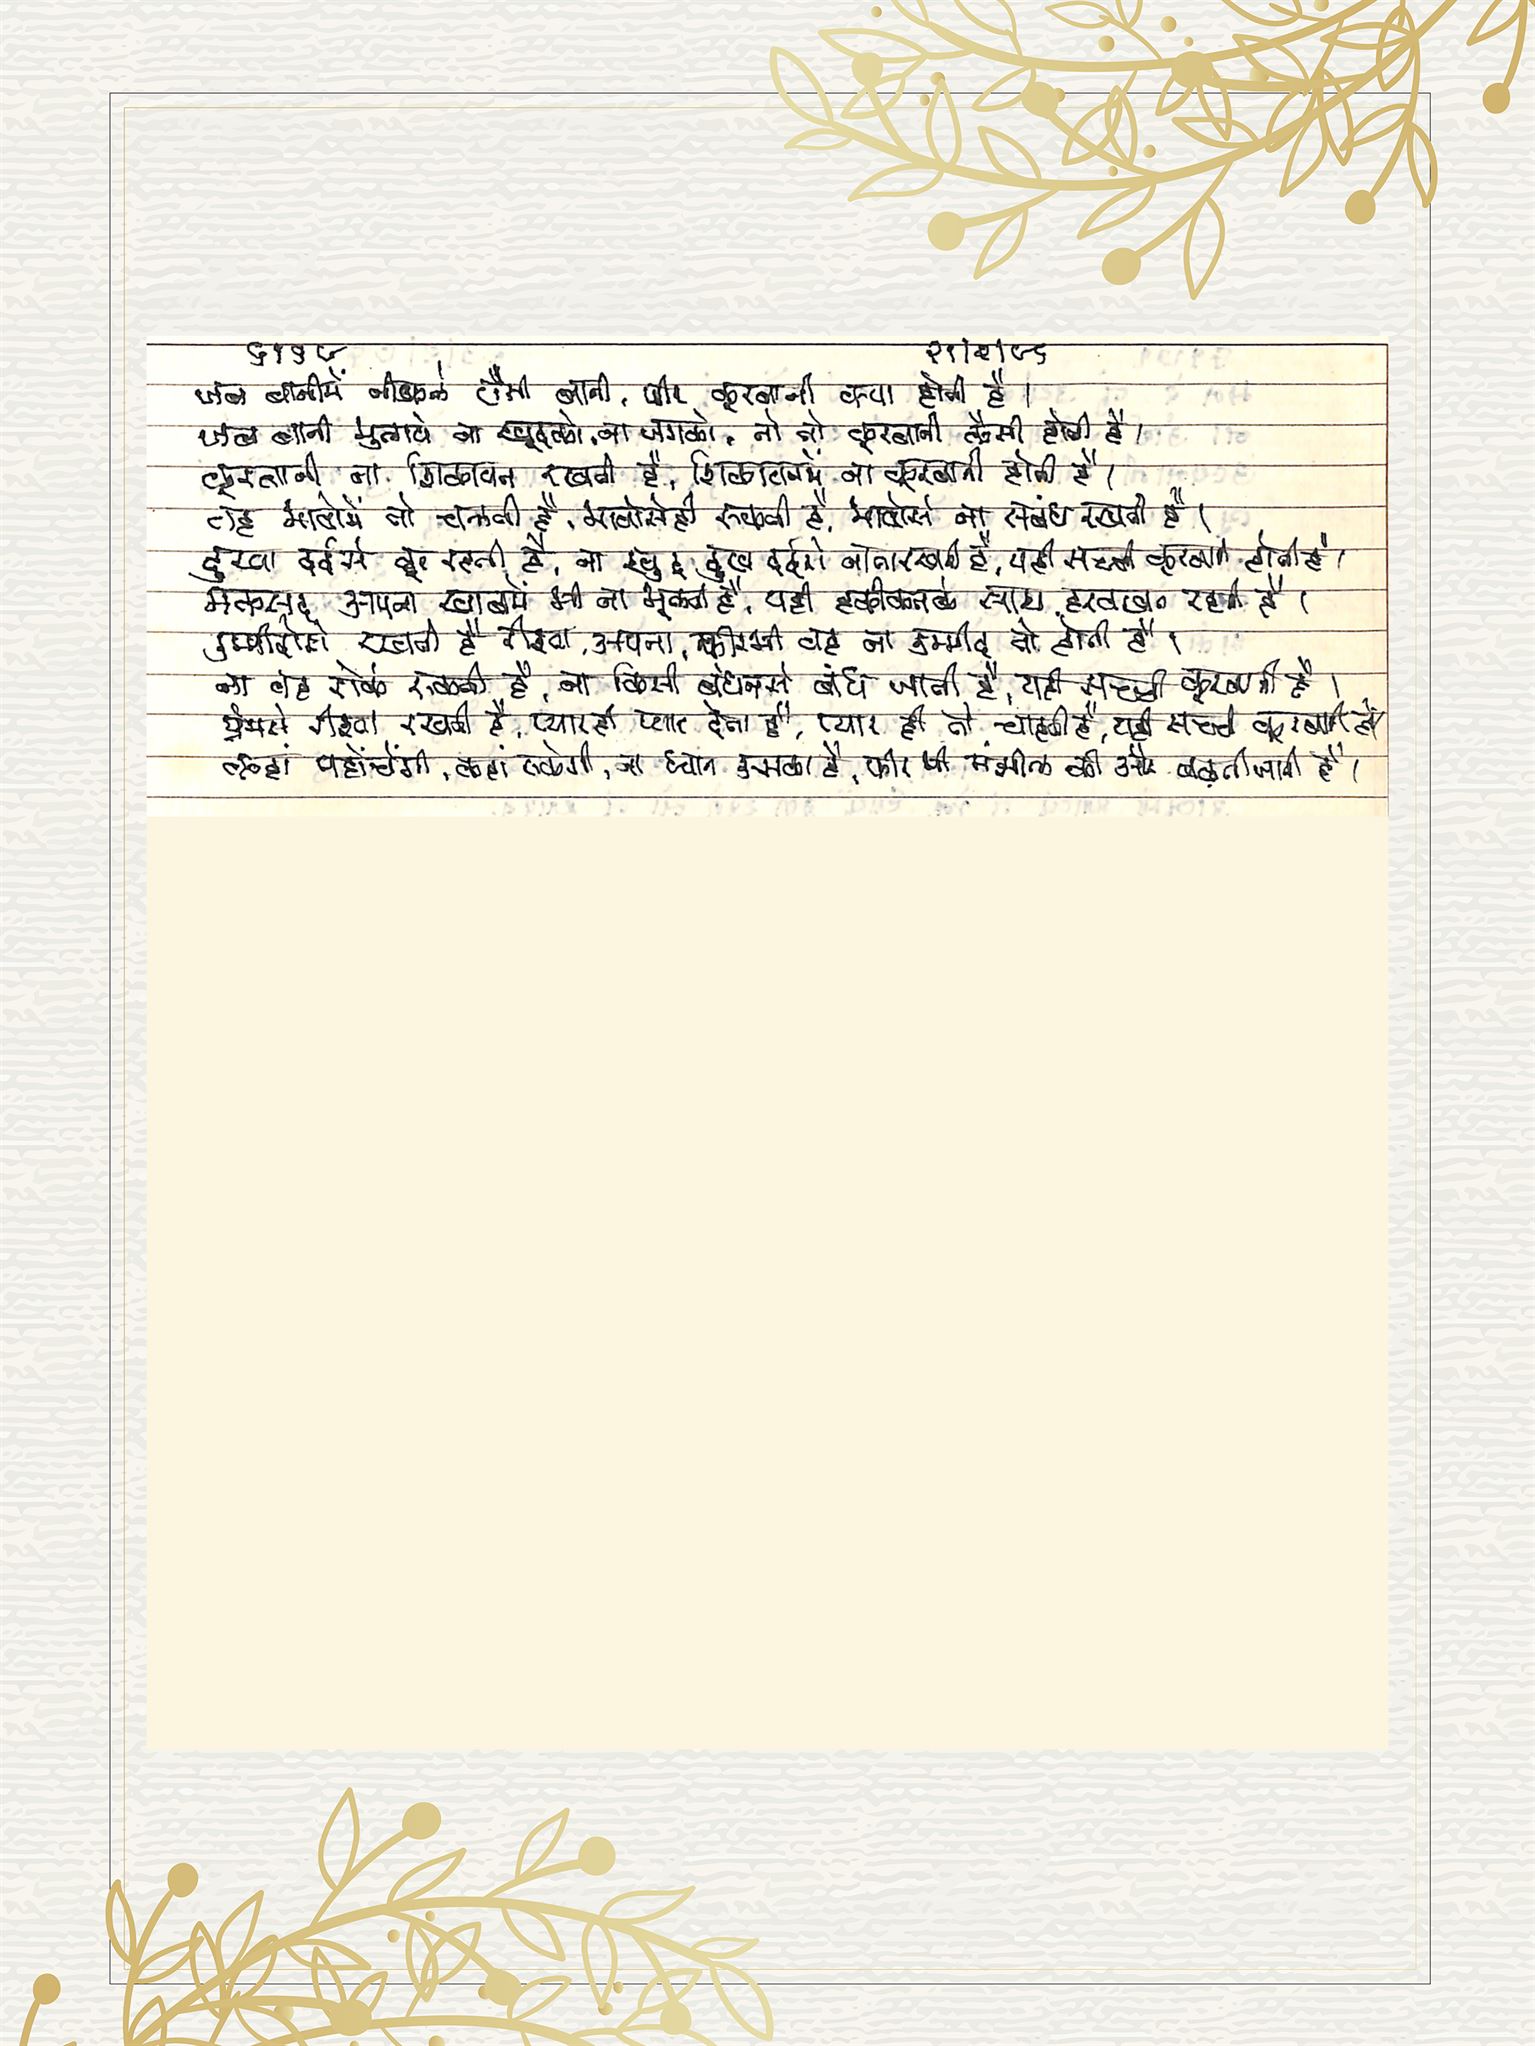 २१/२/८६
जब बानीमें नीकले वैसी बानी, फीर कूरबानी क्या होती है।
जब बानी भुलाये ना खुदको, ना जगको, तो वो कूरबानी कैसी होती है।
कूरबानी ना शिकायत रखती है, शिकायतमें ना कूरबानी होती है।
वह भावोमें तो चलती है, भावोसेही रुकती है, भावोसे ना संबंध रखती है।
दुःखा दर्दसे दूर रहती है, ना खुद दुःख दर्दसे नाता रखती है, यही सच्ची कूरबानी होती है।
मकसद अपना ख्वाबमें भी ना भूलती है, यही हकीकतके साथ हरवखत रहती है।
उम्मीदोसे रखती है रीश्ता अपना, फीरभी वह ना उम्मीद तो होती है।
ना वह रोके रुकती है, ना किसी बंधनसे बांध जाती है, यही सच्ची कूरबानी है।
प्रेमसे रीश्ता रखती है, प्यारही प्यार देना है, प्यार ही तो चाहती है, यही सच्ची कूरबानी है
कहां पहोंचेंगी, कहां रुकेगी, ना ध्यान उसका है, फीर भी मंझील की और बढ़ती जाती है।